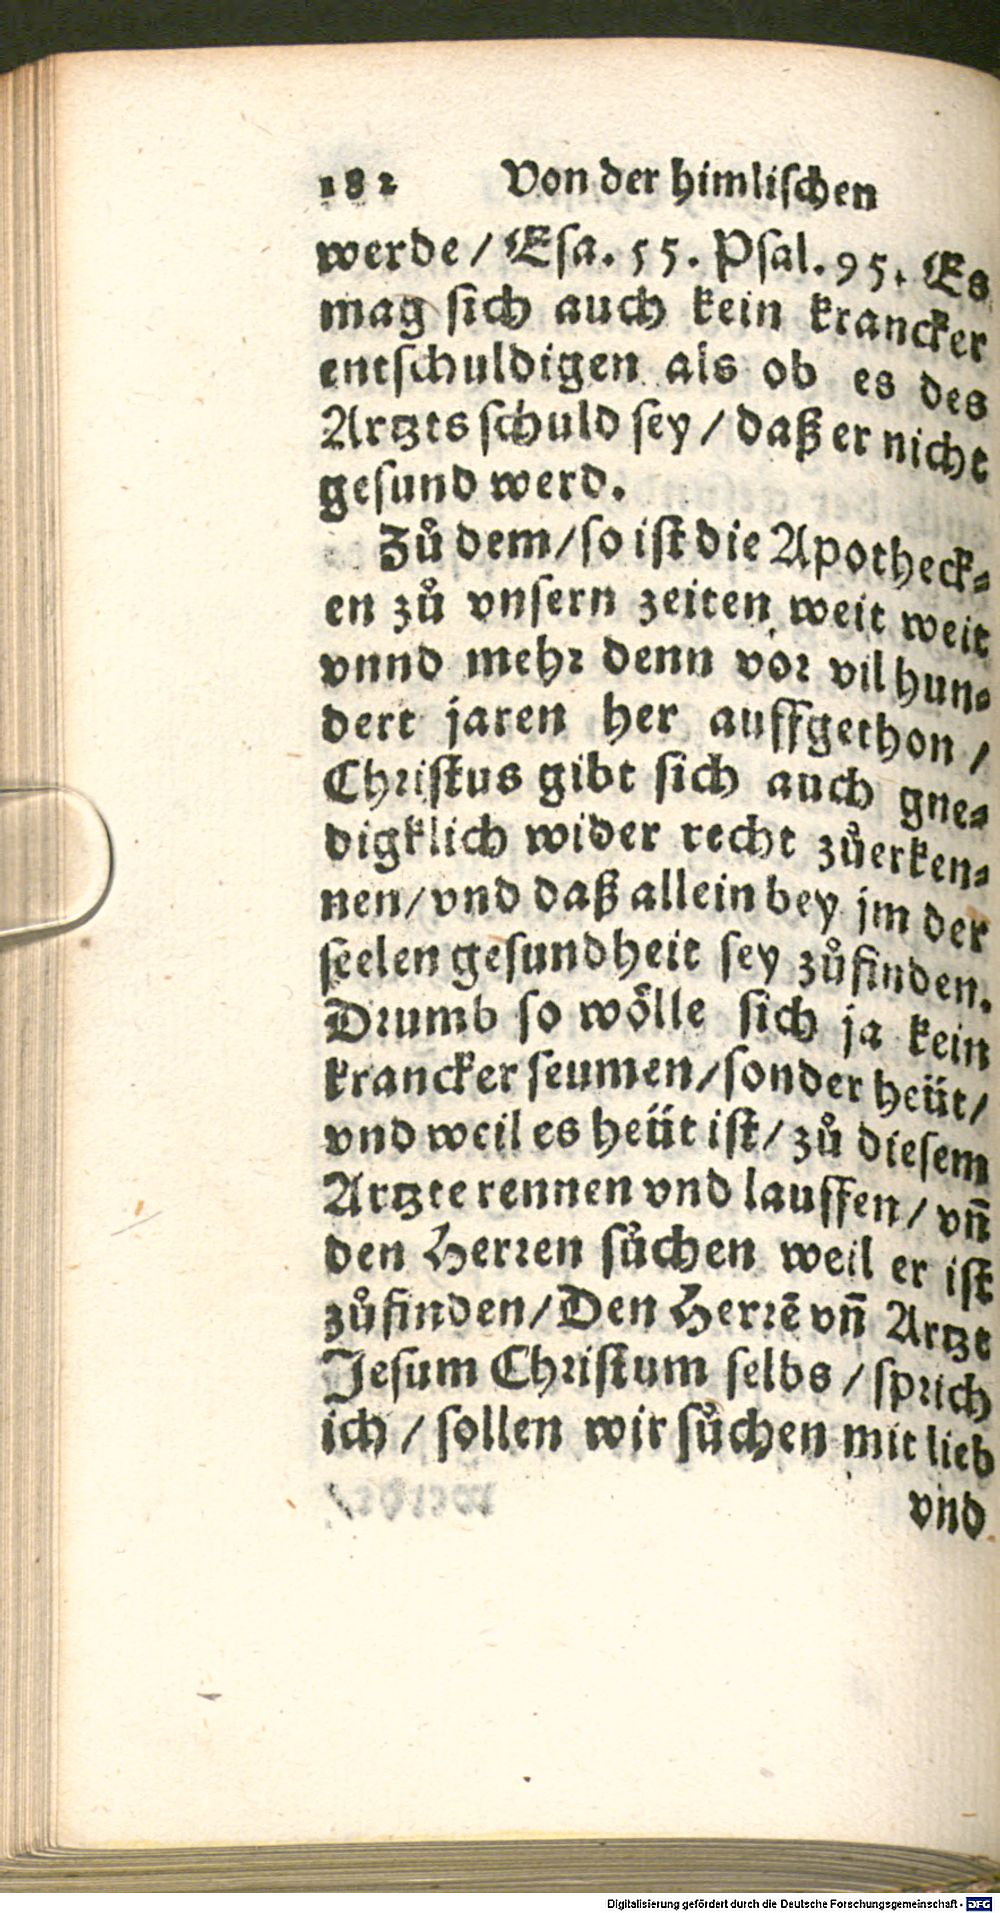 182 Von der himlischen
werde / Esa. 55. Psal. 95. Es
mag sich auch kein krancker
entschuldigen als ob es des
Artzts schuld sey / daß er nicht
gesund werd.
Zů dem / so ist die Apotheck⸗
en zů vnsern zeiten weit weit
vnnd mehr denn vor vil hun⸗
dert jaren her auffgethon /
Christus gibt sich auch gne⸗
digklich wider recht zůerken⸗
nen / vnd daß allein bey jm der
seelen gesundheit sey zůfinden.
Drumb so wölle sich ja kein
krancker seumen / sonder heüt /
vnd weil es heüt ist / zů diesem
Artzte rennen vnd lauffen / vñ
den Herren sůchen weil er ist
zůfinden / Den Herrē vñ Artzt
Jesum Christum selbs / sprich
ich / sollen wir sůchen mit lieb
vnd
Digitalisierung gefördert durch die Deutsche Forschungsgemeinschaft - DFG